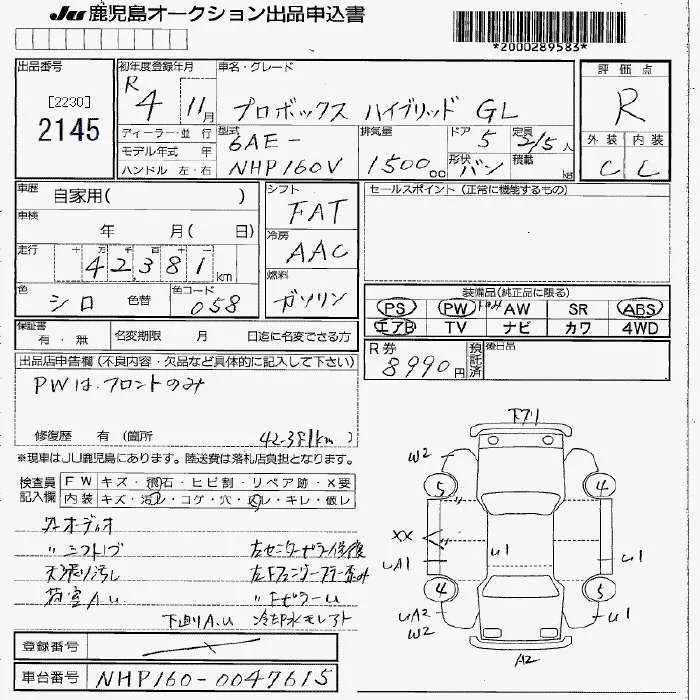 JU 鹿児島オークション出品申込書
*2000289583*
出品番号
[2230]
2145
初年度登録年月
R 4 11月
車名・グレード
プロボックス ハイブリッド GL
評価点
R
外装 内装
C C
ディーラー・並行
モデル年式 年
ハンドル 左・右
型式
6AE-
NHP160V
排気量
1500cc
ドア
5
定員
2/5人
形状
バン
積載
kg
車歴
自家用( )
車検
年 月( 日)
走行
十 万 千 百 十 一
42,381km
色
シロ 色替
色コード
058
シフト
FAT
冷房
AAC
燃料
ガソリン
セールスポイント(正常に機能するもの)
装備品(純正品に限る)
PS PW AW SR ABS
エアB TV ナビ カワ 4WD
保証書
有・無
名変期限 月 日迄に名変できる方
R券
8990円
預託済
後日品
出品店申告欄(不良内容・欠品など具体的に記入して下さい)
PWは.フロントのみ
修復歴 有(箇所 42.381km)
※現車はJU鹿児島にあります。陸送費は落札店負担となります。
検査員
記入欄
FW キズ・飛石・ヒビ割・リペア跡・X要
内装 キズ・汚れ・コゲ・穴・ハレ・キレ・傷レ
外オーディオ
〃シフトノブ
左センターピラー修復
天張り汚し
荷室A.u
〃下ピラーu
下廻りA.u 冷却水モレアト
登録番号
車台番号 NHP160-0047615
下ズリ
W2
5
4
XX
UA1
u1
u1
4
5
UA2
W2
u1
A2